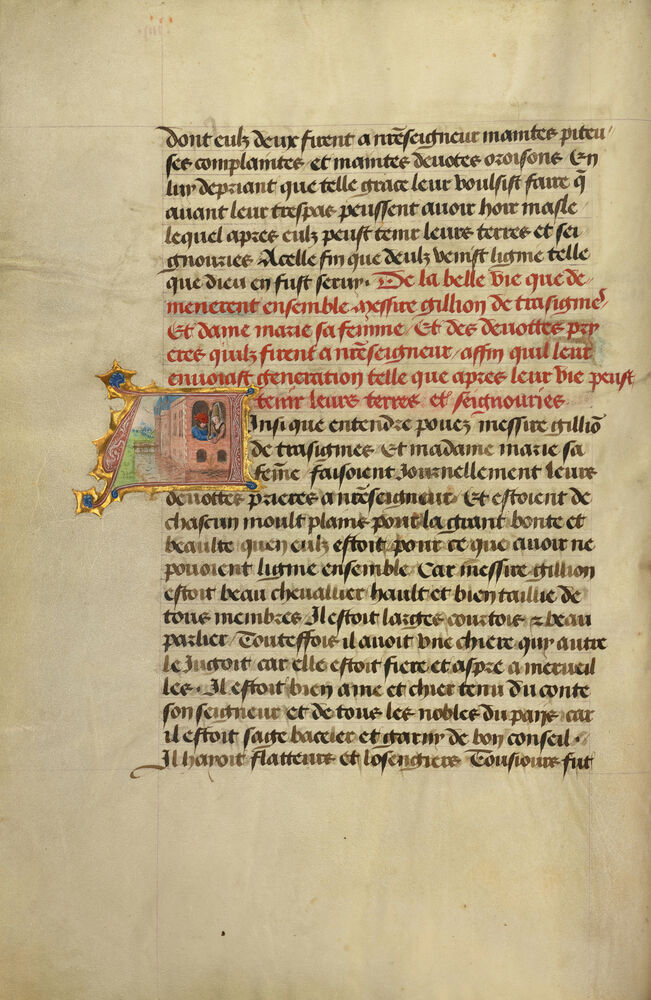 dont eulz deux firent a nr̄eseigneur maintes piteu/
ses complaintes et maintes deuotes oroisons En
luy depriant que telle grace leur voulsist faire q̄
auant leur trespas peussent auoir hoir masle
lequel apres eulz peust tenir leurs terres et sei
gnouries Acelle fin que deulz venist ligne telle
que dieu en fust seruy. De la belle vie que de/
menerent ensemble Messire gillion de trasignēs
Et dame marie sa femme / Et des deuottes pry
eres quilz firent a nr̄eseigneur / affin quil leur
enuoiast generation telle que apres leur vie peust
tenir leurs terres et seignouries
Ainsi que entendre pouez messire gilliō
de trasignies Et madame marie sa
fēme faisoient Journellement leurs
deuottes prieres a nr̄eseigneur / Et estoient de
chascun moult plains pour la grant bonte et
beaulte quen eulz estoit pour ce que auoir ne
pouoient lignie ensemble / Car messire gillion
estoit beau cheuallier hault et bien taillie de
tous membres Il estoit larges courtois & beau
parlier / Touteffois il auoit vne chiere quy autre
le Jugoit car elle estoit fiere et aspre a merueil
les. Il estoit bien ame et chier tenu du conte
son seigneur et de tous les nobles du pays car
il estoit sage baceler et garny de bon conseil.
Il hayoit flatteurs et losengiers Tousiours fut